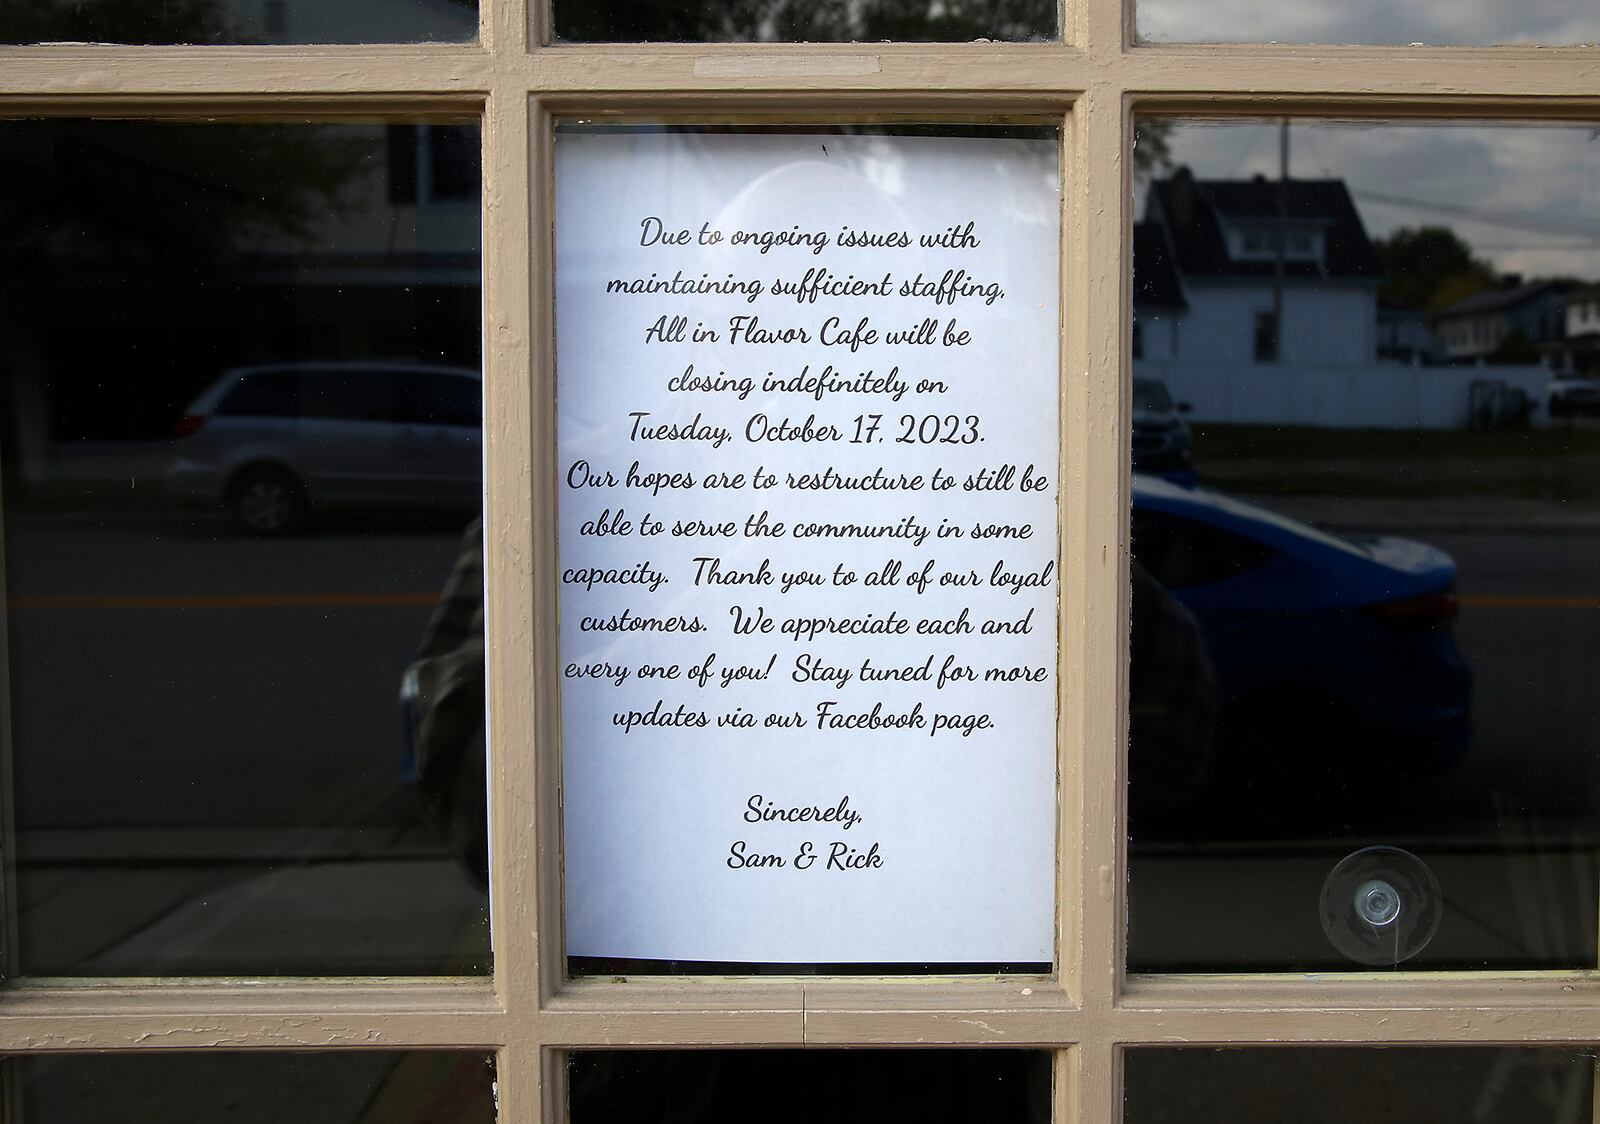 Due to ongoing issues with
maintaining sufficient staffing,
All in Flavor Cafe will be
closing indefinitely on
Tuesday, October 17, 2023.
Our hopes are to restructure to still be
able to serve the community in some
capacity. Thank you to all of our loyal
customers. We appreciate each and
every one of you! Stay tuned for more
updates via our Facebook page.
Sincerely,
Sam & Rick